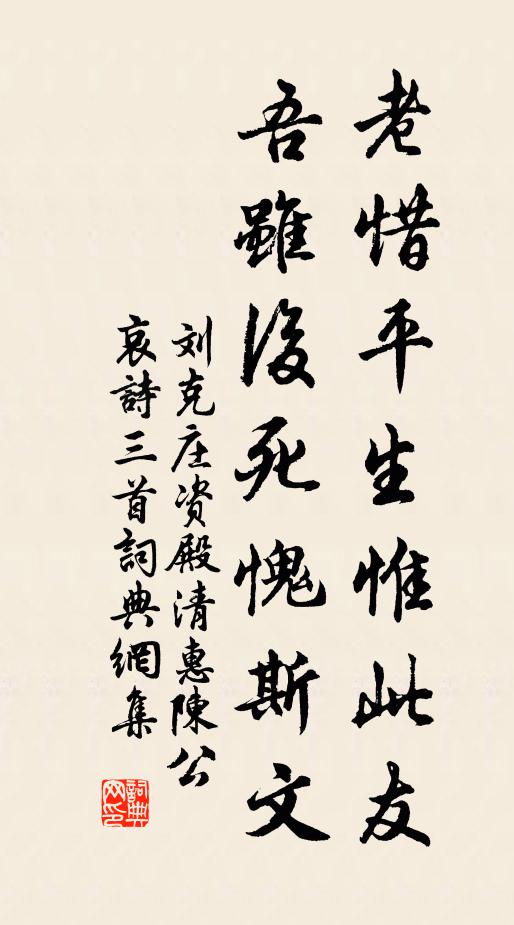 老惜平生惟此友
吾雖後死愧斯文
刘克庄资殿清惠陳公
哀詩三首詞典網集
詞典网印